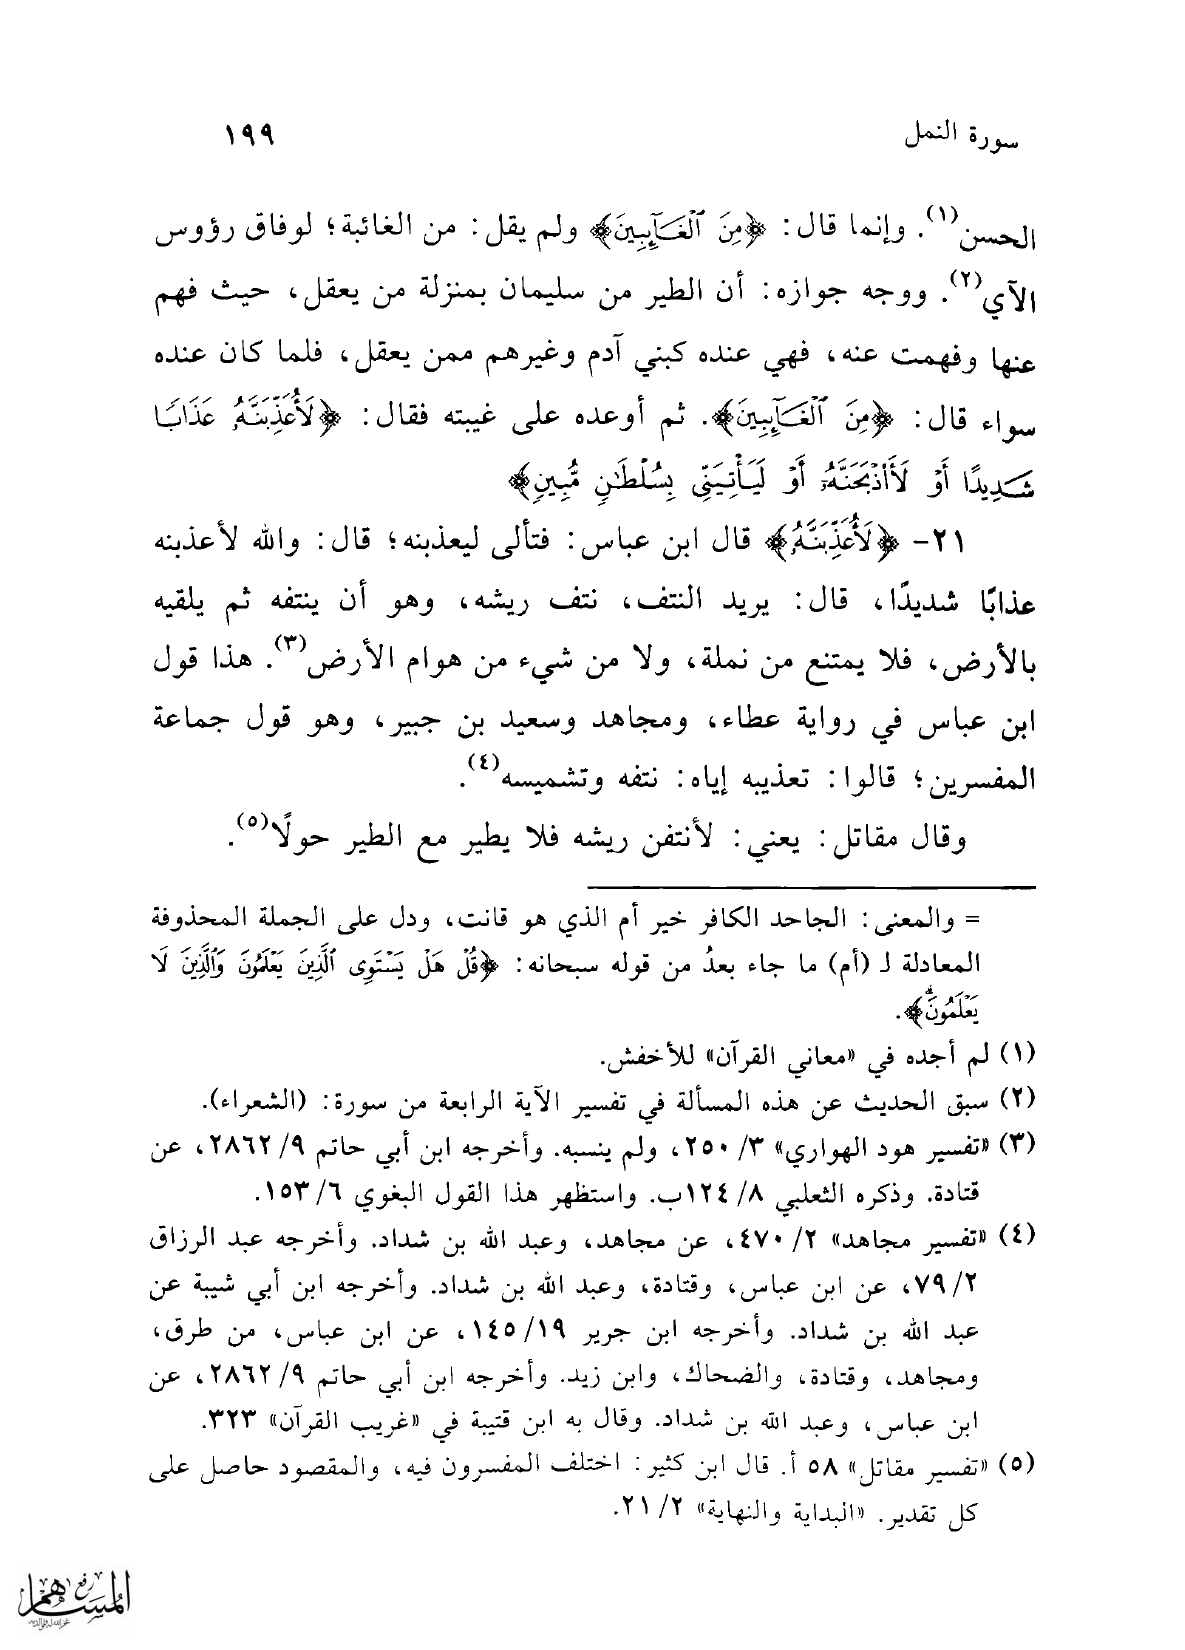 سورة النمل
١٩٩
الحسن(١). وإنما قال: ﴿مِنَ ٱلْغَآئِبِينَ﴾ ولم يقل: من الغائبة؛ لوفاق رؤوس
الآي(٢). ووجه جوازه: أن الطير من سليمان بمنزلة من يعقل، حيث فهم
عنها وفهمت عنه، فهي عنده كبني آدم وغيرهم ممن يعقل، فلما كان عنده
سواء قال: ﴿مِنَ ٱلْغَآئِبِينَ﴾. ثم أوعده على غيبته فقال: ﴿لَأُعَذِّبَنَّهُۥ عَذَابًا
شَدِيدًا أَوْ لَأَاْذْبَحَنَّهُۥٓ أَوْ لَيَأْتِيَنِّى بِسُلْطَٰنٍ مُّبِينٍ﴾
٢١- ﴿لَأُعَذِّبَنَّهُۥ﴾ قال ابن عباس: فتألى ليعذبنه؛ قال: والله لأعذبنه
عذابًا شديدًا، قال: يريد النتف، نتف ريشه، وهو أن ينتفه ثم يلقيه
بالأرض، فلا يمتنع من نملة، ولا من شيء من هوام الأرض(٣). هذا قول
ابن عباس في رواية عطاء، ومجاهد وسعيد بن جبير، وهو قول جماعة
المفسرين؛ قالوا: تعذيبه إياه: نتفه وتشميسه(٤).
وقال مقاتل: يعني: لأنتفن ريشه فلا يطير مع الطير حولًا(٥).
= والمعنى: الجاحد الكافر خير أم الذي هو قانت، ودل على الجملة المحذوفة
المعادلة لـ (أم) ما جاء بعدُ من قوله سبحانه: ﴿قُلْ هَلْ يَسْتَوِى ٱلَّذِينَ يَعْلَمُونَ وَٱلَّذِينَ لَا
يَعْلَمُونَۗ﴾.
(١) لم أجده في «معاني القرآن» للأخفش.
(٢) سبق الحديث عن هذه المسألة في تفسير الآية الرابعة من سورة: (الشعراء).
(٣) «تفسير هود الهواري» ٣/ ٢٥٠، ولم ينسبه. وأخرجه ابن أبي حاتم ٩/ ٢٨٦٢، عن
قتادة. وذكره الثعلبي ٨/ ١٢٤ب. واستظهر هذا القول البغوي ٦/ ١٥٣.
(٤) «تفسير مجاهد» ٢/ ٤٧٠، عن مجاهد، وعبد الله بن شداد. وأخرجه عبد الرزاق
٢/ ٧٩، عن ابن عباس، وقتادة، وعبد الله بن شداد. وأخرجه ابن أبي شيبة عن
عبد الله بن شداد. وأخرجه ابن جرير ١٩/ ١٤٥، عن ابن عباس، من طرق،
ومجاهد، وقتادة، والضحاك، وابن زيد. وأخرجه ابن أبي حاتم ٩/ ٢٨٦٢، عن
ابن عباس، وعبد الله بن شداد. وقال به ابن قتيبة في «غريب القرآن» ٣٢٣.
(٥) «تفسير مقاتل» ٥٨ أ. قال ابن كثير: اختلف المفسرون فيه، والمقصود حاصل على
كل تقدير. «البداية والنهاية» ٢/ ٢١.